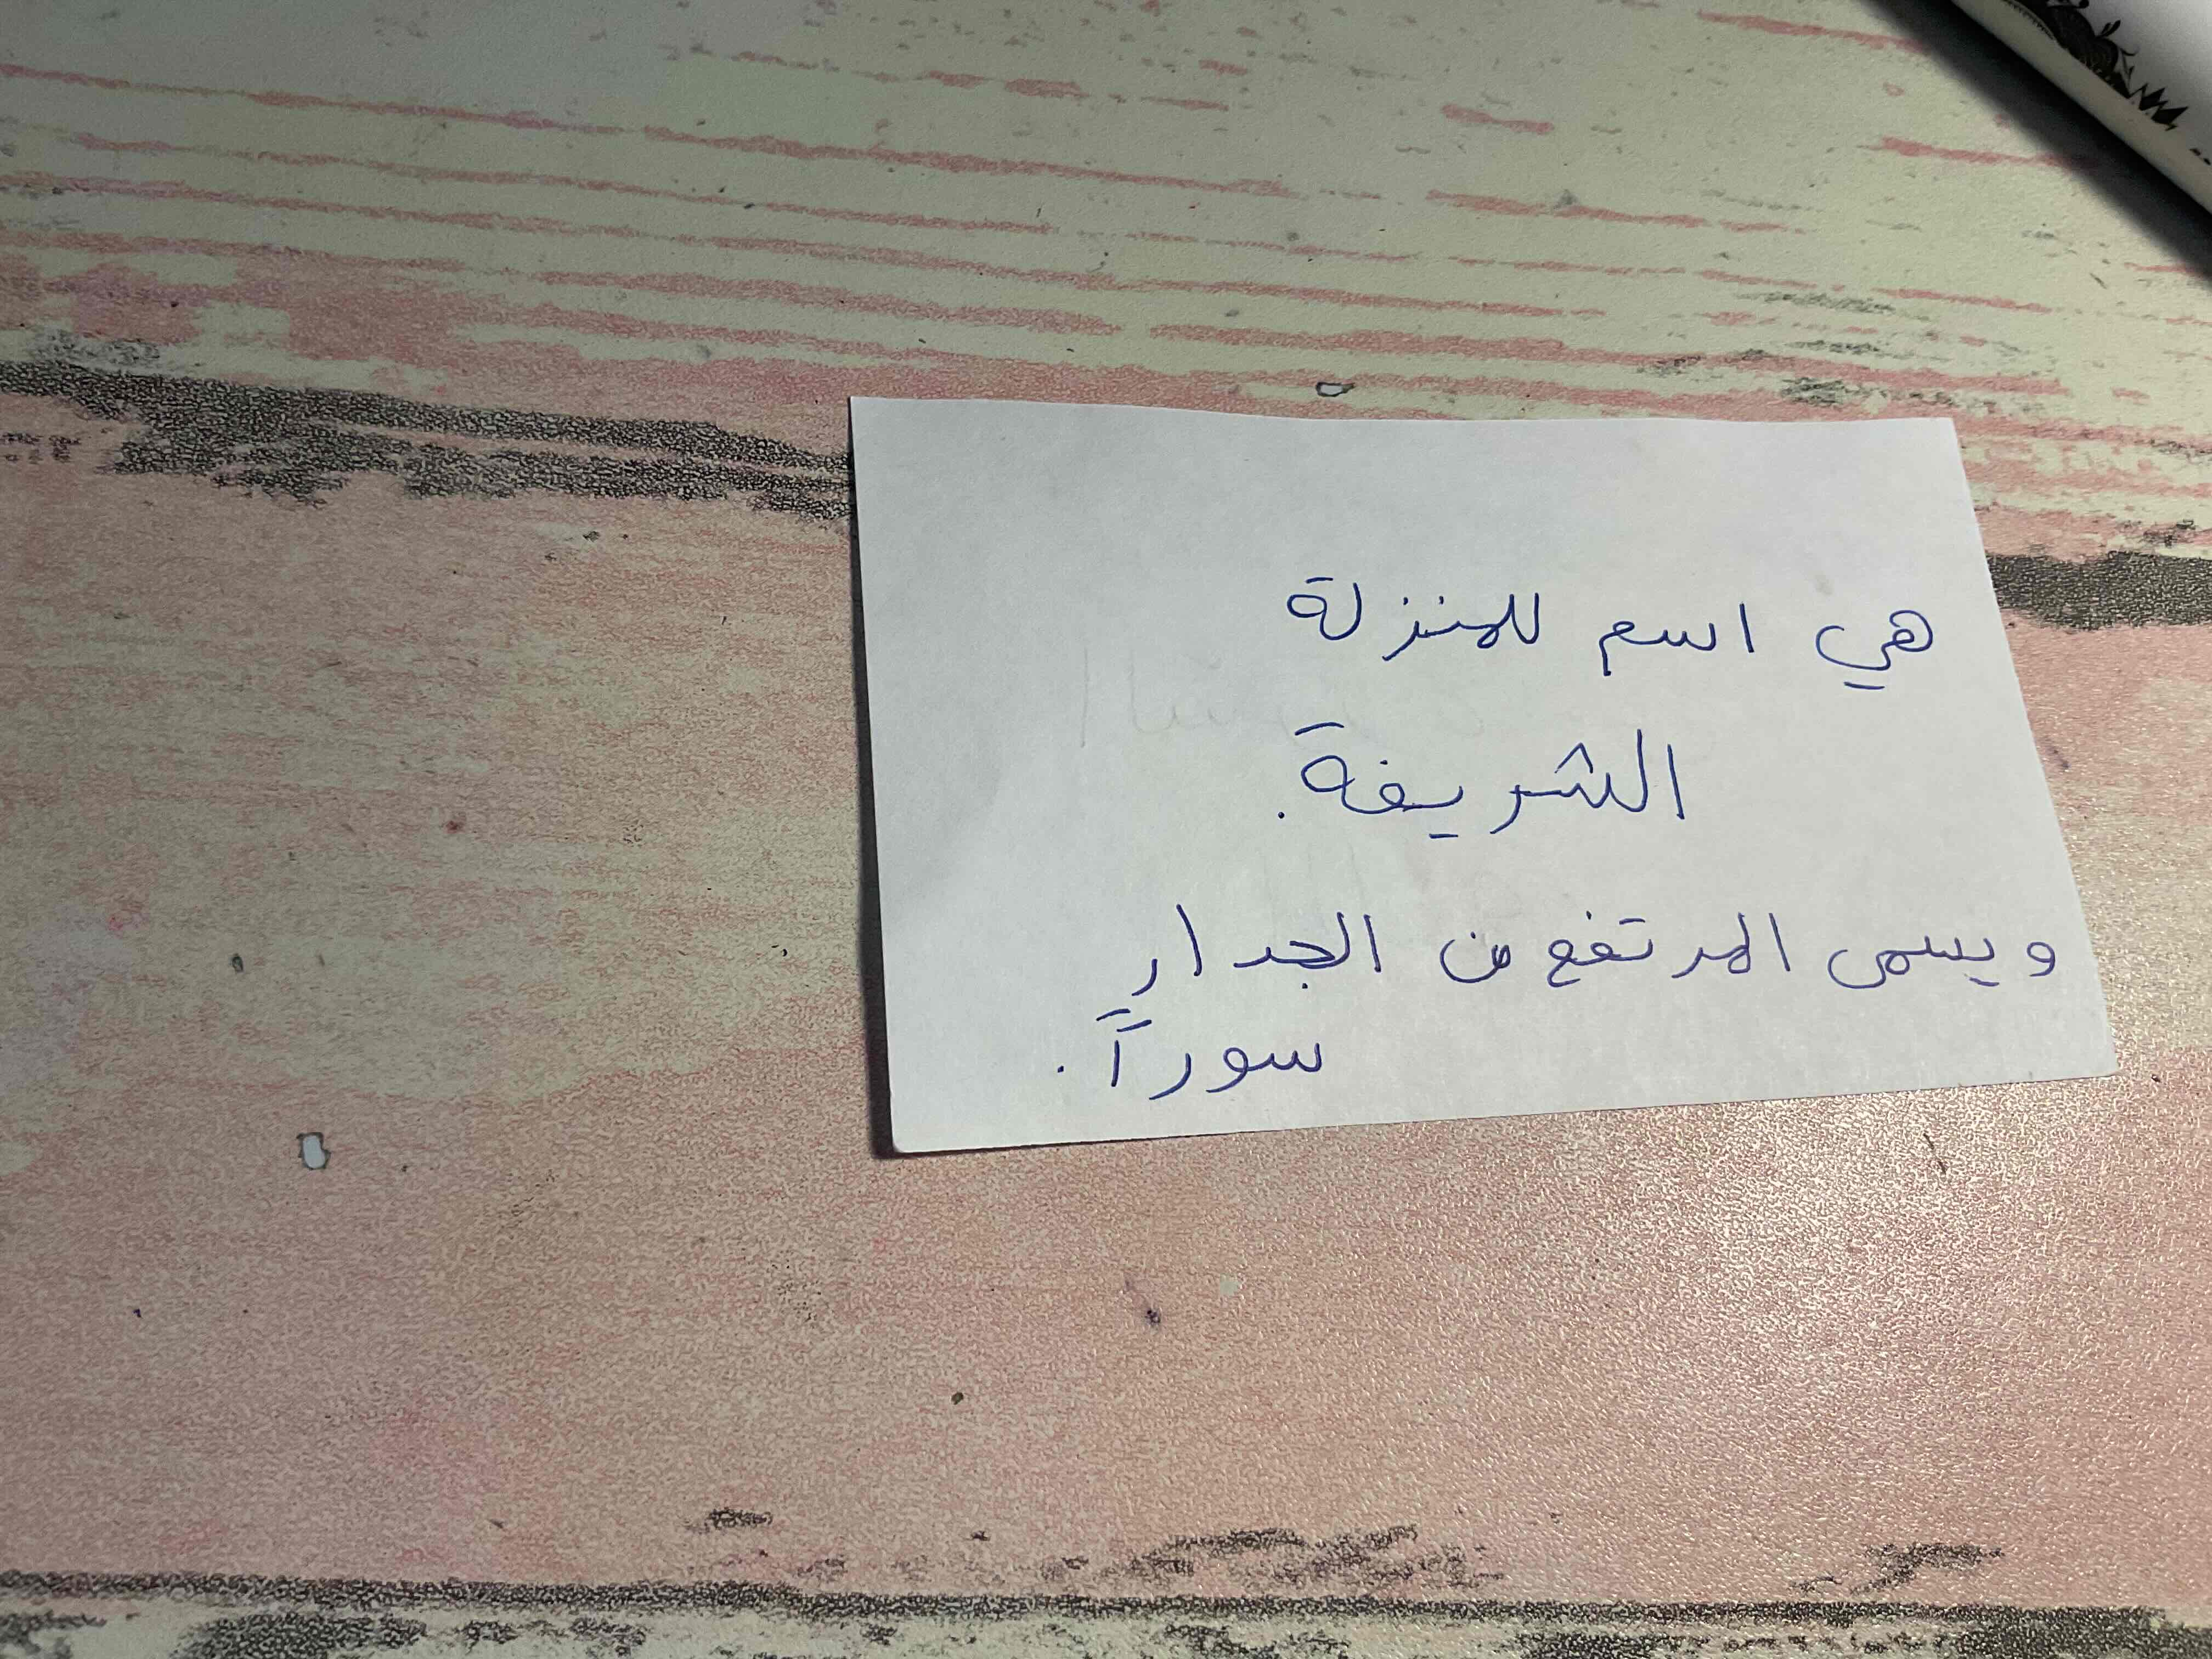 هي اسم للمنزلة
الشريفة.
ويسمى المرتفع من الجدار
سوراً.